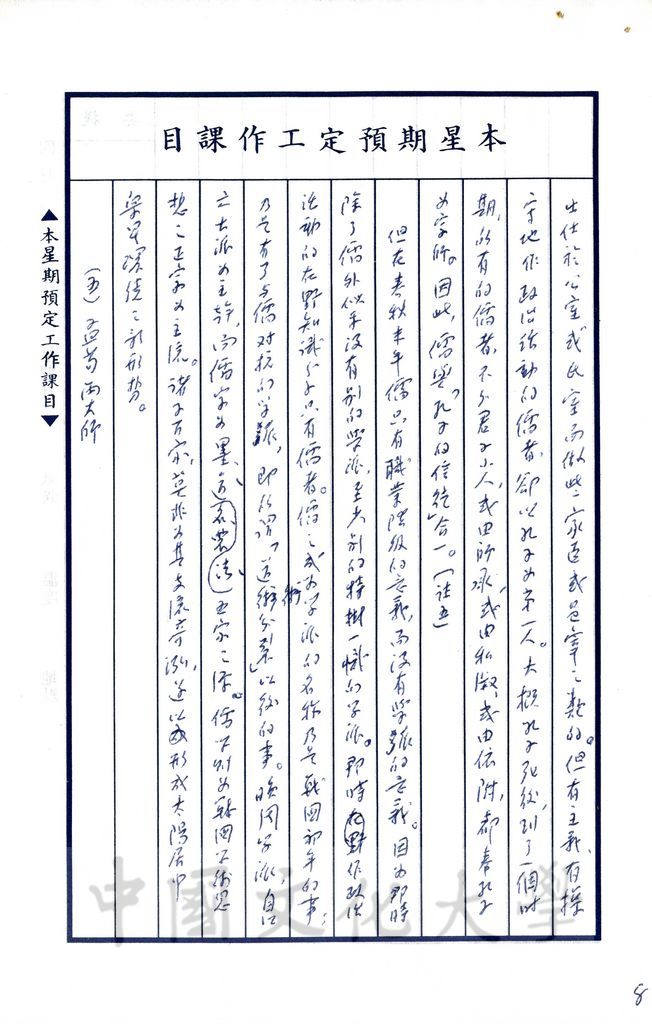 本星期預定工作課目
出仕於公室或氏室而做些家臣或邑宰之類的。但有主義、有操
守地作政治活動的儒者，卻以孔子為第一人。大概孔子死後，到了一個時
期，所有的儒者，不分君子小人，或由師承，或由私淑，或由依附，都奉孔子
為宗師。因此，儒與「孔子的信徒」合一。（註五）
但在春秋末年儒只有職業階級的意義，而沒有學派的意義。因為那時
除了儒外似乎沒有別的學派，至少別的特樹一幟的學派。那時在野作政治
活動的在野知識分子只有儒者。儒之成為學派的名稱乃是戰國初年的事；
乃是有了與儒對抗的學派，即所謂「道術分裂」以後的事。晚周學派，自
六大派為主幹，
想之正宗為主流。諸子百家，莫非為其支流
形成太陽居中
眾星環繞之新形勢。
（五）
兩大師
▲本星期預定工作課目▼
中國文化大學
8